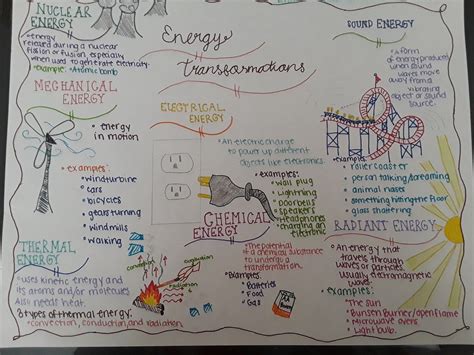 NUCLEAR
ENERGY
energy
released during a nuclear
fission or fusion, especially
when used to generate electricity.
example: Atomic bomb
Energy
Transformations
SOUND ENERGY
A form
of energy produced
when sound
waves move
away from a
vibrating
object or sound
source.
MECHANICAL
ENERGY
energy
in motion
examples:
windturbine
cars
bicycles
gears turning
windmills
walking
ELECTRICAL
ENERGY
An electric charge
to power up different
objects like electronics.
examples:
wall plug
lightning
doorbells
speakers
headphones
charging an
electronic
examples:
roller coaster
person talking/screaming
animal noises
something hitting the floor
glass shattering
CHEMICAL
ENERGY
The potential
of a chemical substance
to undergo a
transformation.
Examples:
Batteries
Food
Gas
RADIANT ENERGY
An energy that
travels through
waves or particles.
Usually electromagnetic
waves.
examples:
The sun
Bunsen Burner/open flame
Microwave ovens
Light bulb.
THERMAL
ENERGY
uses kinetic energy and
its atoms and/or molecules.
Also need heat.
3 types of thermal energy:
convection, conduction, and radiation
convection